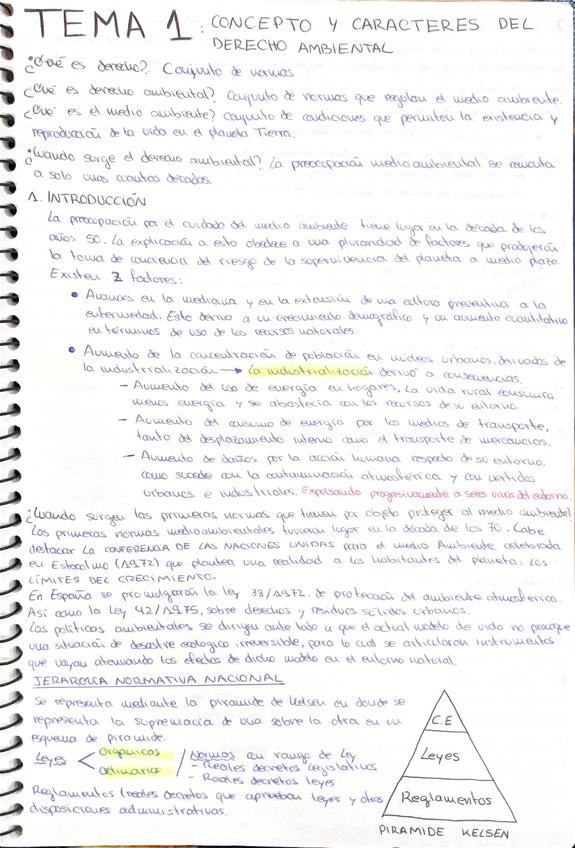 TEMA 1: CONCEPTO Y CARACTERES DEL
DERECHO AMBIENTAL
¿Qué es derecho? Conjunto de normas
¿Qué es derecho ambiental? Conjunto de normas que regulan el medio ambiente.
¿Qué es el medio ambiente? Conjunto de condiciones que permiten la existencia y
reproducción de la vida en el planeta Tierra.
¿Cuándo surge el derecho ambiental? La preocupación medioambiental se remonta
a solo unas cuantas décadas.
1. INTRODUCCIÓN
La preocupación por el cuidado del medio ambiente tiene lugar en la década de los
años 50. La explicación a esto obedece a una pluralidad de factores que produjeron
la toma de conciencia del riesgo de la supervivencia del planeta a medio plazo.
Existen 2 factores:
• Avances en la medicina y en la extensión de una cultura preventiva a la
enfermedad. Esto derivó a un crecimiento demográfico y un aumento cuantitativo
en términos de uso de los recursos naturales.
• Aumento de la concentración de población en núcleos urbanos derivados de
la industrialización → La industrialización derivó a consecuencias.
– Aumento del uso de energía en hogares. La vida rural consumía
menos energía y se abastecía con los recursos de su entorno.
– Aumento del consumo de energía por los medios de transporte,
tanto del desplazamiento interno como el transporte de mercancías.
– Aumento de daños por la acción humana respecto de su entorno.
como sucede con la contaminación atmosférica y con vertidos
urbanos e industriales. Expulsando progresivamente a seres vivos del entorno.
¿Cuándo surgen las primeras normas que tienen por objeto proteger al medio ambiente?
Las primeras normas medioambientales tuvieron lugar en la década de los 70. Cabe
destacar la CONFERENCIA DE LAS NACIONES UNIDAS para el medio Ambiente celebrada
en Estocolmo (1972) que plantea una realidad a los habitantes del planeta: LOS
LÍMITES DEL CRECIMIENTO.
En España se promulgaron la ley 38/1972. de protección del ambiente atmosférico.
Así como la Ley 42/1975, sobre desechos y residuos sólidos urbanos.
Las políticas ambientales se dirigen ante todo a que el actual modelo de vida no provoque
una situación de desastre ecológico irreversible, para lo cual se articularon instrumentos
que vayan atenuando los efectos de dicho modelo en el entorno natural.
JERARQUÍA NORMATIVA NACIONAL
Se representa mediante la pirámide de Kelsen en donde se
representa la supremacía de una sobre la otra en un
esquema de pirámide.
Leyes < orgánicas / Normas con rango de Ley
ordinarias – Reales decretos legislativos
– Reales decretos leyes
Reglamentos (reales decretos que aprueban leyes y otras
disposiciones administrativas.
C.E
Leyes
Reglamentos
PIRAMIDE KELSEN